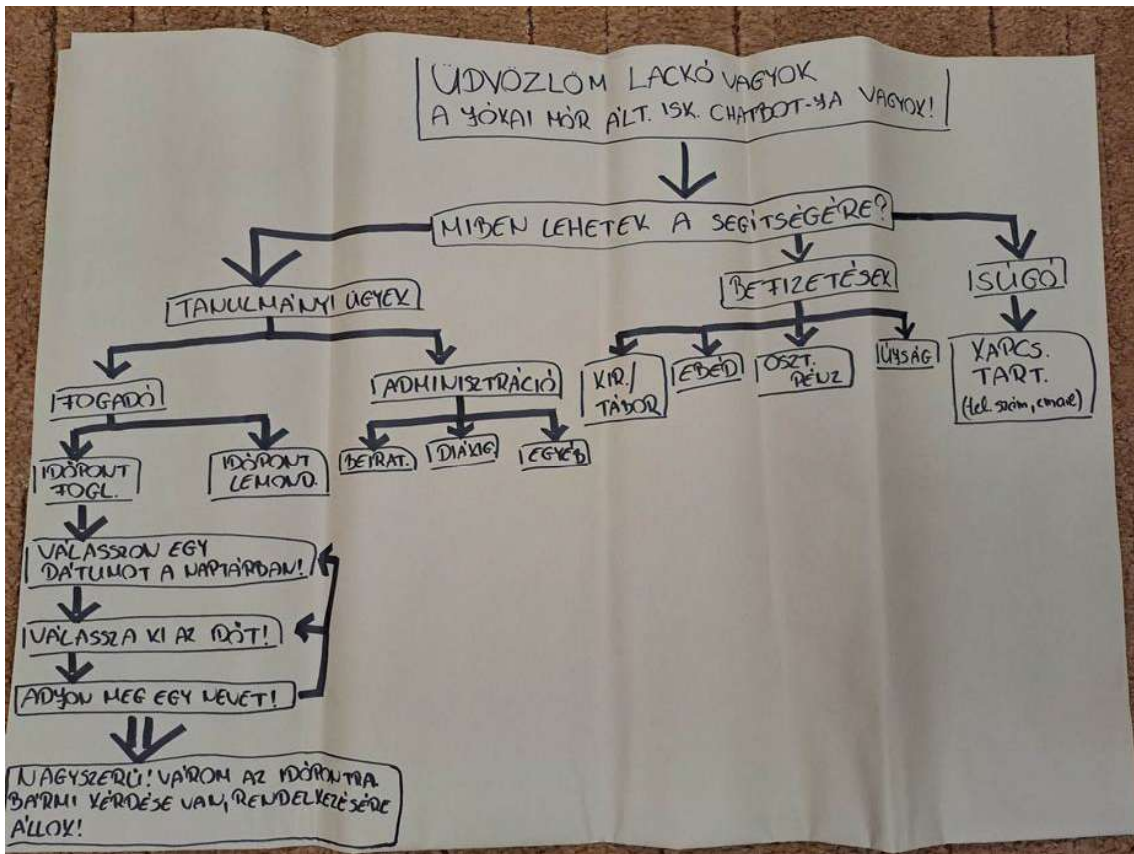 ÜDVÖZLÖM LACKÓ VAGYOK
A JÓKAI MÓR ÁLT. ISK. CHATBOT-JA VAGYOK!
MIBEN LEHETEK A SEGÍTSÉGÉRE?
TANULMÁNYI ÜGYEK
BEFIZETÉSEK
SÚGÓ
FOGADÓ
ADMINISZTRÁCIÓ
KIR./
TÁBOR
EBÉD
OSZT.
PÉNZ
ÚJSÁG
KAPCS.
TART.
(tel. szám, email)
IDŐPONT
FOGL.
IDŐPONT
LEMOND.
BEIRAT.
DIÁKIG.
EGYÉB
VÁLASSZON EGY
DÁTUMOT A NAPTÁRBAN!
VÁLASSZA KI AZ IDŐT!
ADJON MEG EGY NEVET!
NAGYSZERŰ! VÁROM AZ IDŐPONTRA.
BÁRMI KÉRDÉSE VAN, RENDELKEZÉSÉRE
ÁLLOK!